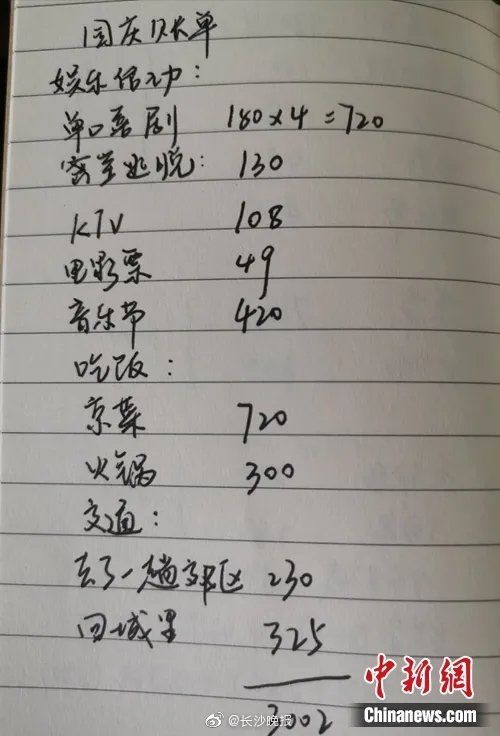 国庆账单
娱乐活动:
单口喜剧 180×4=720
密室逃脱: 130
KTV 108
电影票 49
音乐节 420
吃饭:
京菜 720
火锅 300
交通:
去了一趟郊区 230
回城里 325
3002
中新网
Chinanews.com
@长沙晚报